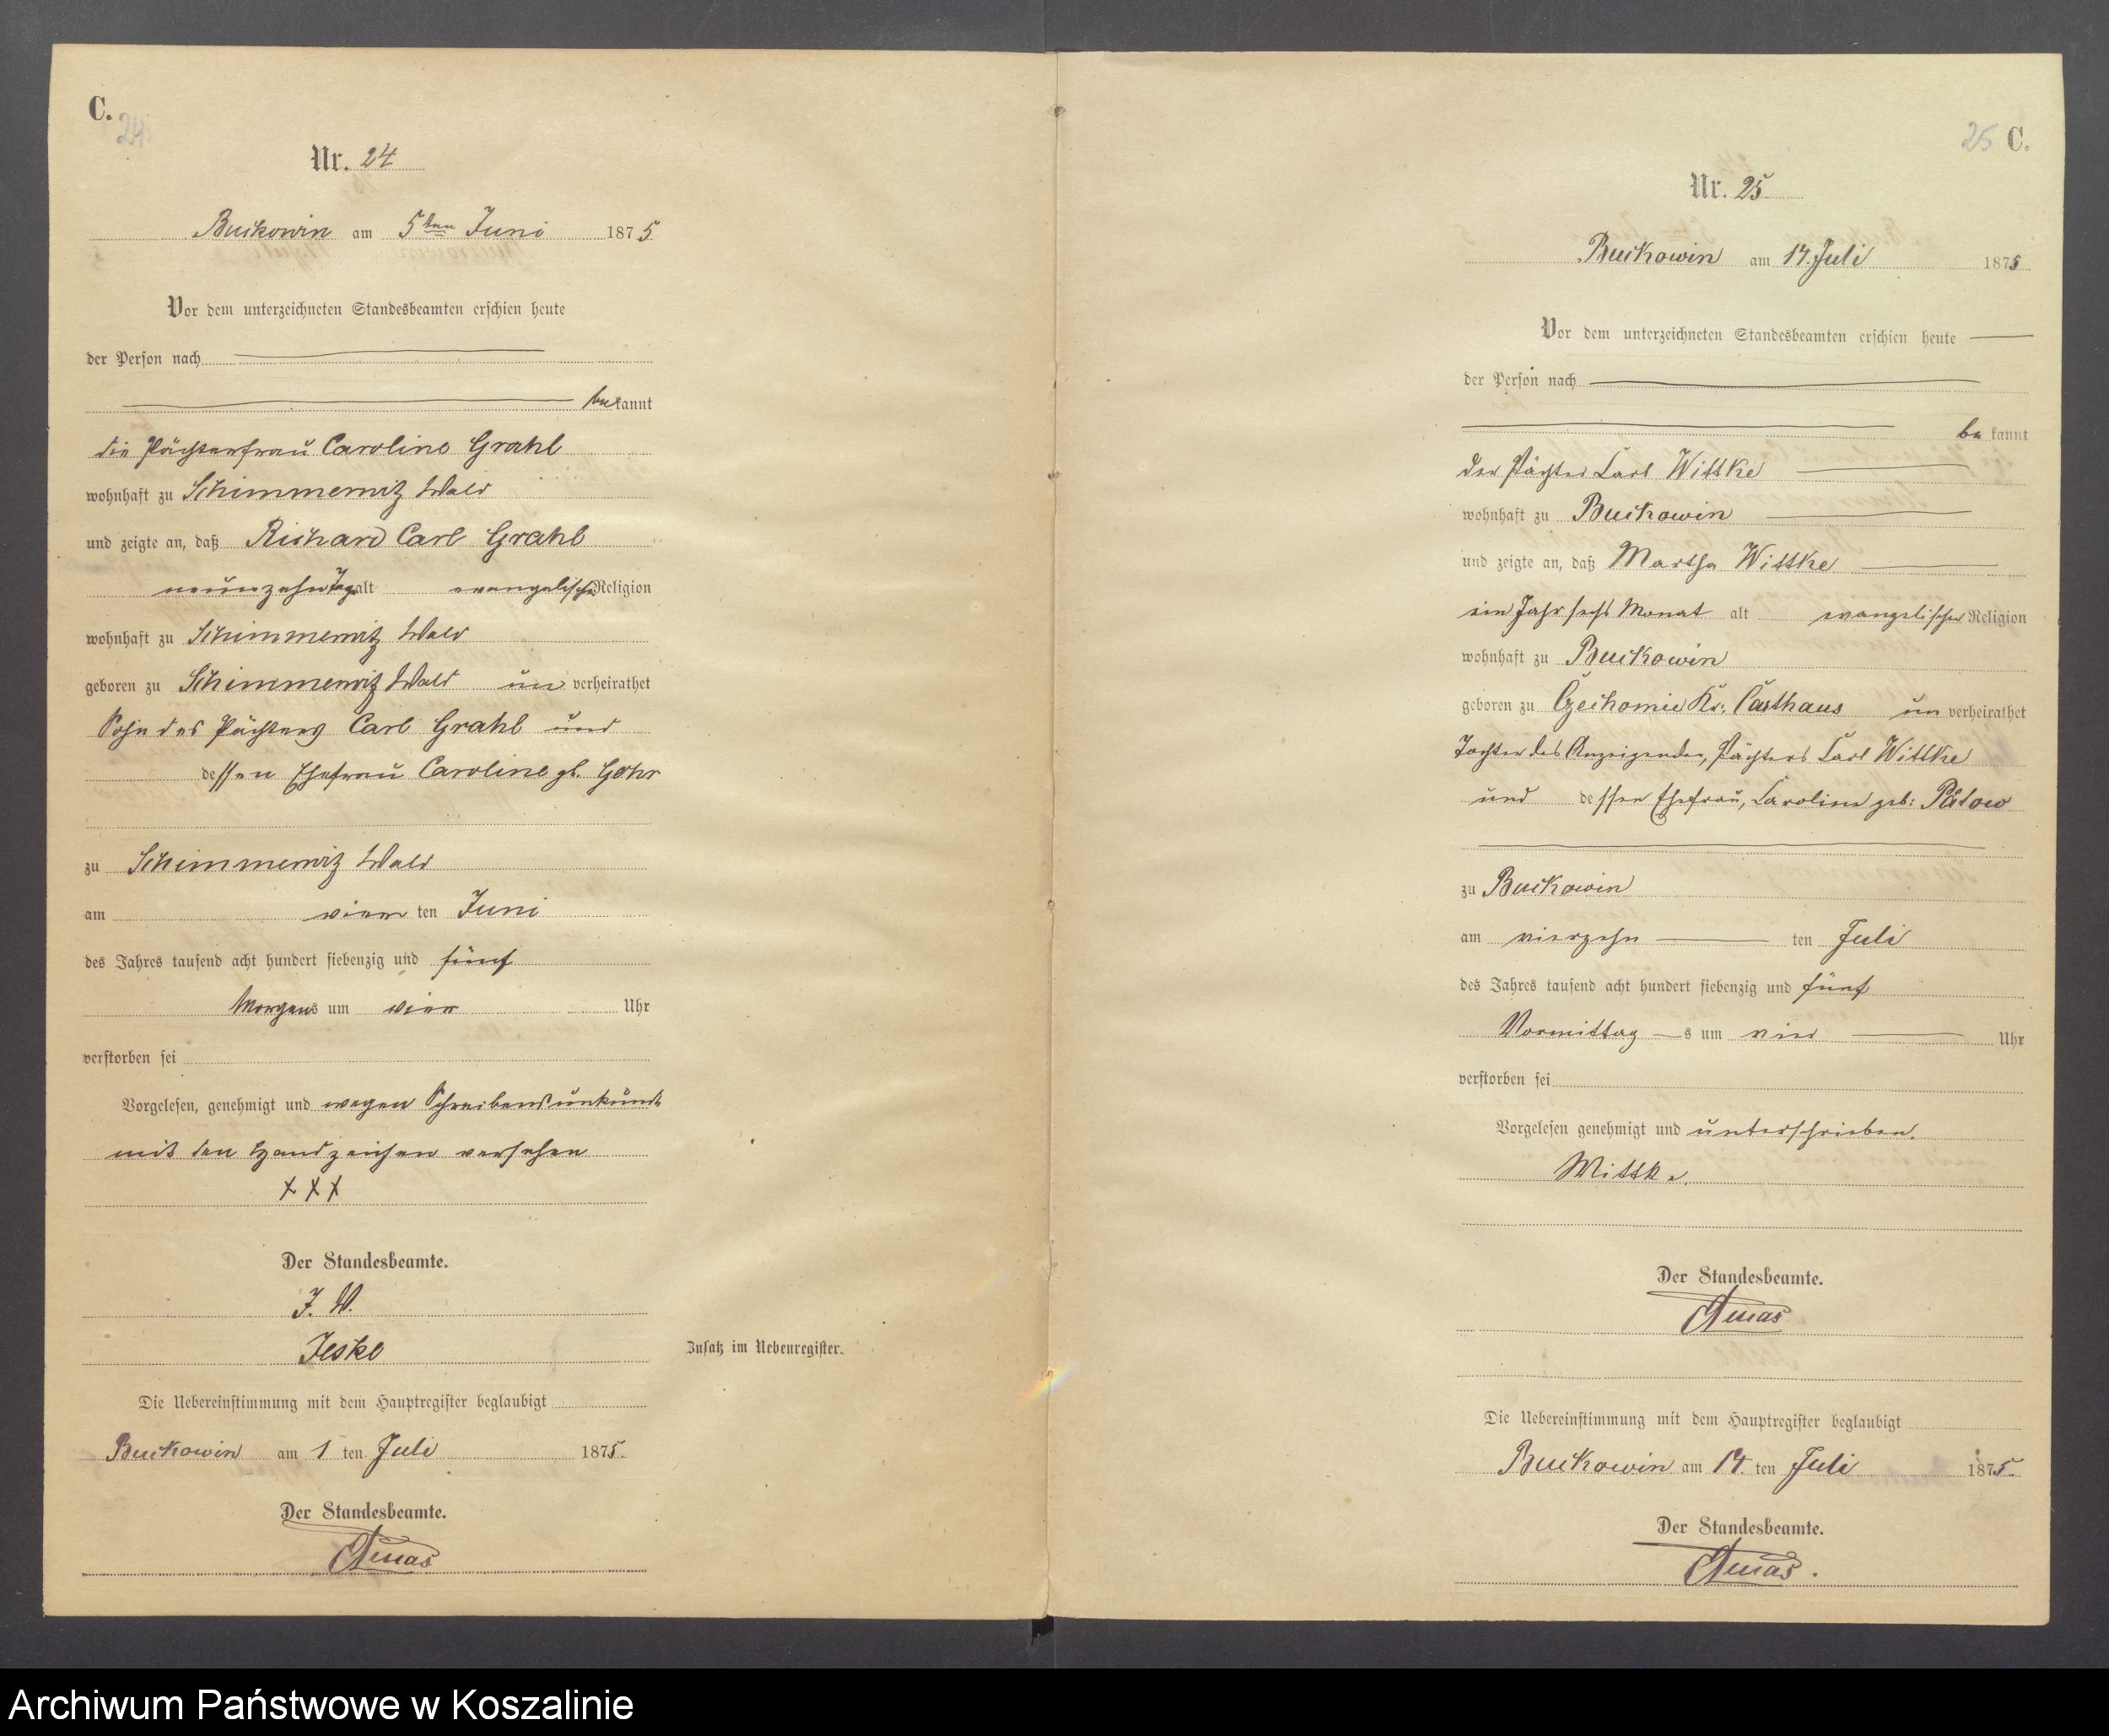 C.
24.
Nr. 24
Buckowin am 5ten Juni 1875
Vor dem unterzeichneten Standesbeamten erschien heute
der Person nach
bekannt
die Pächterfrau Caroline Grahl
wohnhaft zu Schimmerwitz Wald
und zeigte an, daß Richard Carl Grahl
neunzehn Tage alt evangelischer Religion
wohnhaft zu Schimmerwitz Wald
geboren zu Schimmerwitz Wald un verheirathet
Sohn des Pächters Carl Grahl und
dessen Ehefrau Caroline gb. Gohr
zu Schimmerwitz Wald
am vier ten Juni
des Jahres tausend acht hundert siebenzig und fünf
Morgens um vier Uhr
verstorben sei
Vorgelesen, genehmigt und wegen Schreibensunkunde
mit den Handzeichen versehen
X X X
Der Standesbeamte.
J. V.
Jeske
Zusatz im Nebenregister.
Die Uebereinstimmung mit dem Hauptregister beglaubigt
Buckowin am 1 ten Juli 1875.
Der Standesbeamte.
25 C.
Nr. 25
Buckowin am 14. Juli 1875
Vor dem unterzeichneten Standesbeamten erschien heute
der Person nach
be kannt
der Pächter Carl Wittke
wohnhaft zu Buckowin
und zeigte an, daß Martha Wittke
ein Jahr sechs Monat alt evangelischer Religion
wohnhaft zu Buckowin
geboren zu Czechomie Kr: Carthaus un verheirathet
Tochter des Anzeigenden, Pächters Carl Wittke
und dessen Ehefrau, Caroline geb: Pätow
zu Buckowin
am vierzehn ten Juli
des Jahres tausend acht hundert siebenzig und fünf
Vormittag s um vier Uhr
verstorben sei
Vorgelesen genehmigt und unterschrieben.
Wittke.
Der Standesbeamte.
Die Uebereinstimmung mit dem Hauptregister beglaubigt
Buckowin am 14. ten Juli 1875.
Der Standesbeamte.
Archiwum Państwowe w Koszalinie